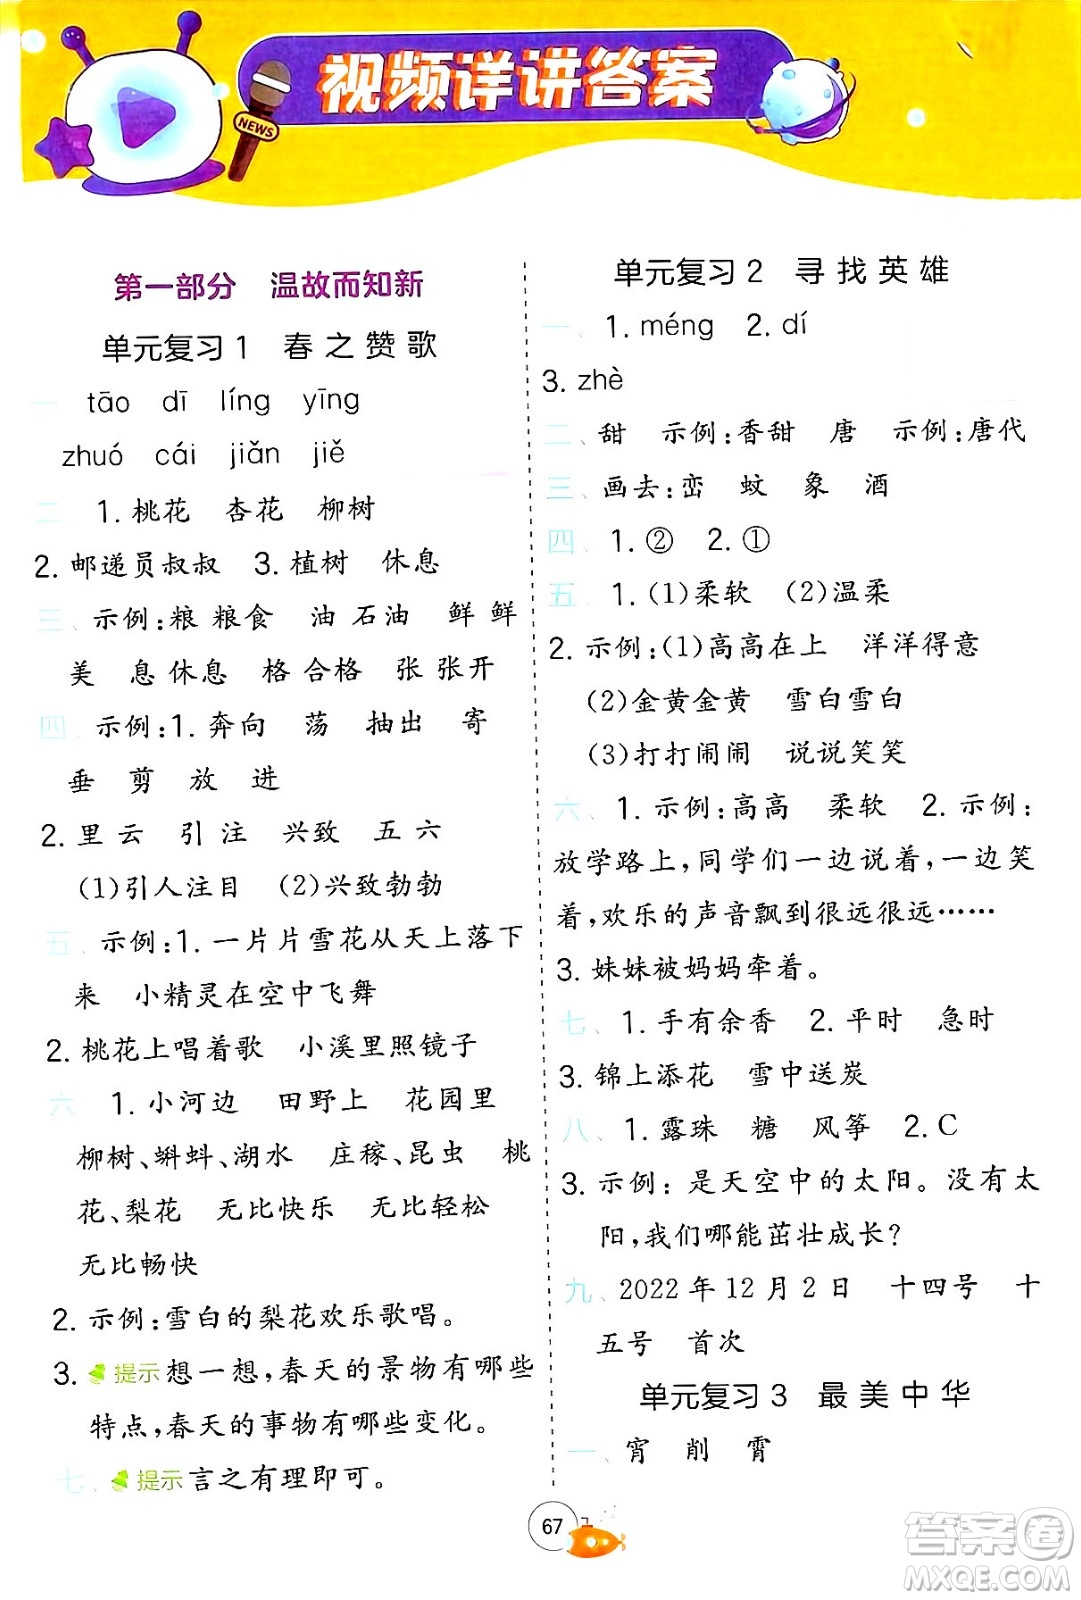 视频详讲答案
NEWS
第一部分 温故而知新
单元复习 1 春之赞歌
一、tāo dī líng yīng
zhuó cái jiǎn jiě
二、1. 桃花 杏花 柳树
2. 邮递员叔叔 3. 植树 休息
三、示例:粮 粮食 油 石油 鲜 鲜
美 息 休息 格 合格 张 张开
四、示例:1. 奔向 荡 抽出 寄
垂 剪 放 进
2. 里 云 引 注 兴致 五 六
(1)引人注目 (2)兴致勃勃
五、示例:1. 一片片雪花从天上落下
来 小精灵在空中飞舞
2. 桃花上唱着歌 小溪里照镜子
六、1. 小河边 田野上 花园里
柳树、蝌蚪、湖水 庄稼、昆虫 桃
花、梨花 无比快乐 无比轻松
无比畅快
2. 示例:雪白的梨花欢乐歌唱。
3. 提示 想一想,春天的景物有哪些
特点,春天的事物有哪些变化。
七、提示 言之有理即可。
单元复习 2 寻找英雄
一、1. méng 2. dí
3. zhè
二、甜 示例:香甜 唐 示例:唐代
三、画去:峦 蚊 象 酒
四、1. ② 2. ①
五、1. (1)柔软 (2)温柔
2. 示例:(1)高高在上 洋洋得意
(2)金黄金黄 雪白雪白
(3)打打闹闹 说说笑笑
六、1. 示例:高高 柔软 2. 示例:
放学路上,同学们一边说着,一边笑
着,欢乐的声音飘到很远很远……
3. 妹妹被妈妈牵着。
七、1. 手有余香 2. 平时 急时
3. 锦上添花 雪中送炭
八、1. 露珠 糖 风筝 2. C
3. 示例:是天空中的太阳。没有太
阳,我们哪能茁壮成长?
九、2022 年 12 月 2 日 十四号 十
五号 首次
单元复习 3 最美中华
一、宵 削 霄
67
答案圈
MXQE.COM